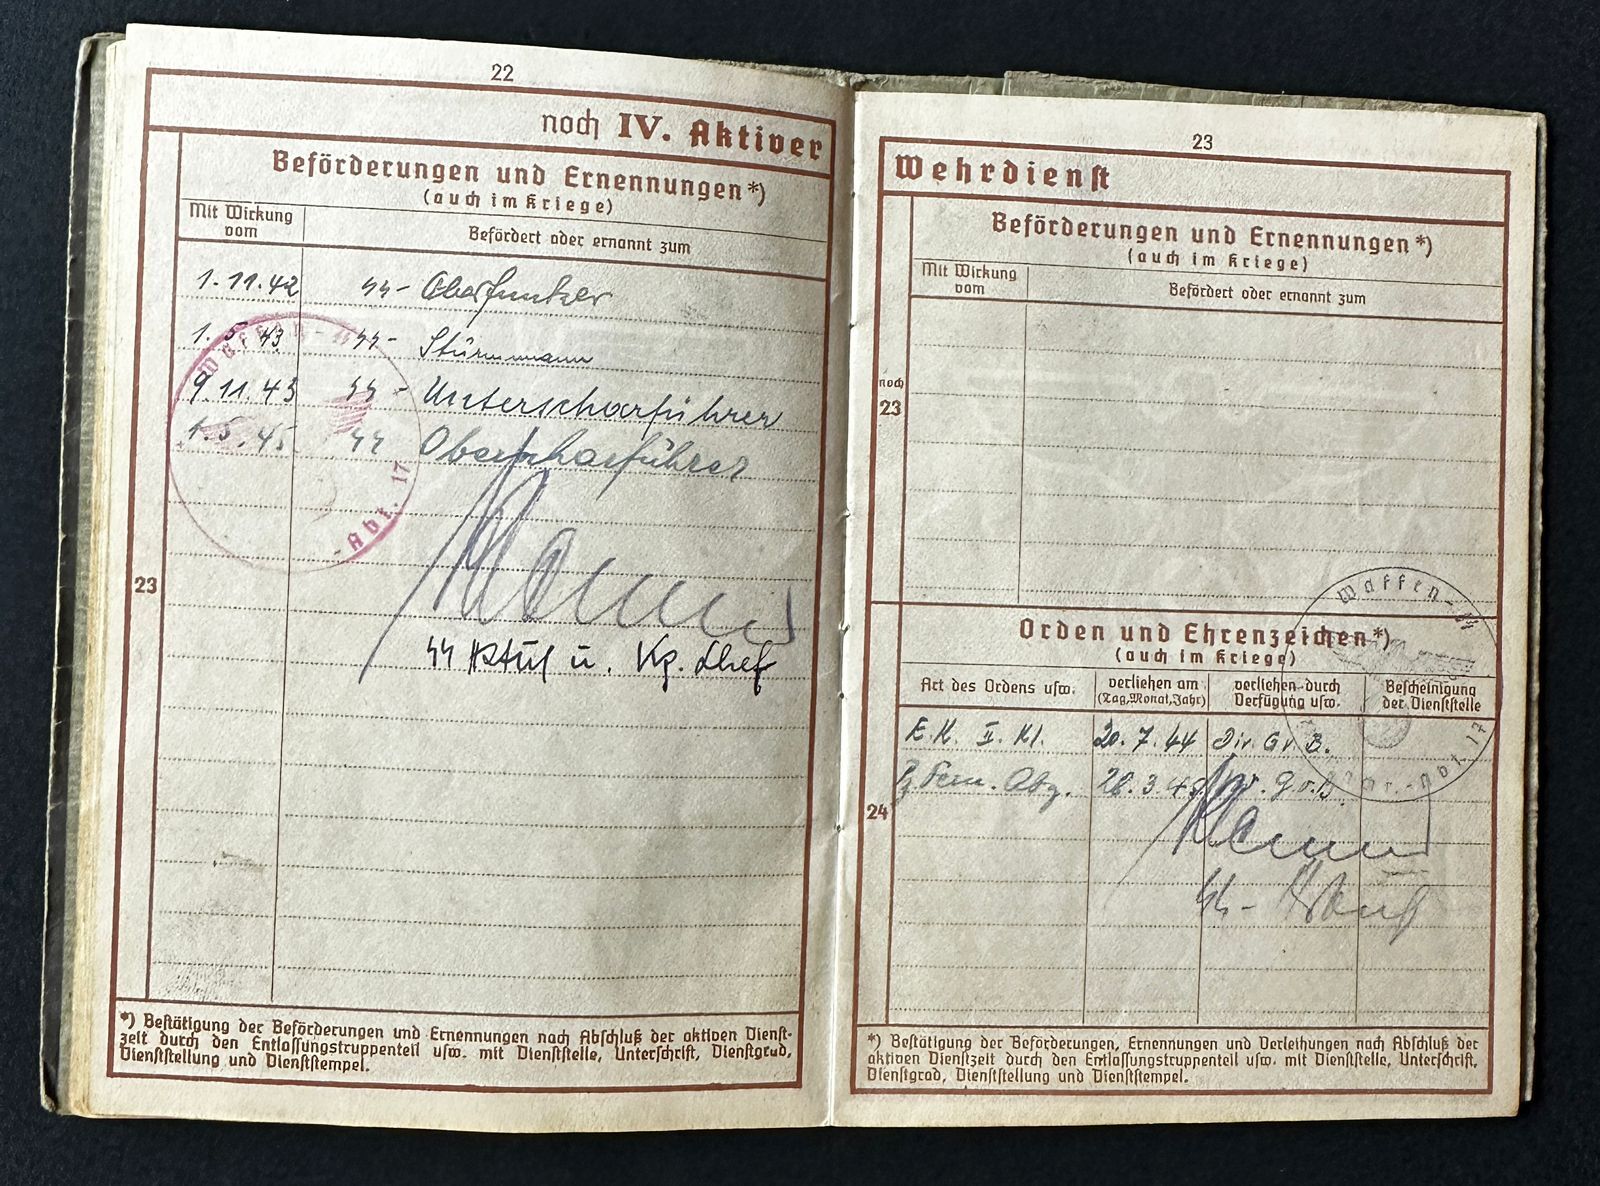 22
noch IV. Aktiver
Beförderungen und Ernennungen*)
(auch im Kriege)
Mit Wirkung vom
Befördert oder ernannt zum
1.11.42 SS- Oberfunker
1.5.43 SS- Sturmmann
9.11.43 SS- Unterscharführer
1.5.45. SS Oberscharführer
Waffen-SS
Abt. 17
23
SS Hstuf u. Kp. Chef
*) Bestätigung der Beförderungen und Ernennungen nach Abschluß der aktiven Dienst-
zeit durch den Entlassungstruppenteil usw. mit Dienststelle, Unterschrift, Dienstgrad,
Dienststellung und Dienststempel.
23
Wehrdienst
Beförderungen und Ernennungen*)
(auch im Kriege)
Mit Wirkung vom
Befördert oder ernannt zum
noch
23
Waffen-SS
Orden und Ehrenzeichen*)
(auch im Kriege)
Art des Ordens usw.
verliehen am
(Tag, Monat, Jahr)
verliehen durch
Verfügung usw.
Bescheinigung
der Dienststelle
E.K. II. Kl. 20.7.44 Div. Gr. B.
Abt 17
24
SS-
*) Bestätigung der Beförderungen, Ernennungen und Verleihungen nach Abschluß der
aktiven Dienstzeit durch den Entlassungstruppenteil usw. mit Dienststelle, Unterschrift,
Dienstgrad, Dienststellung und Dienststempel.